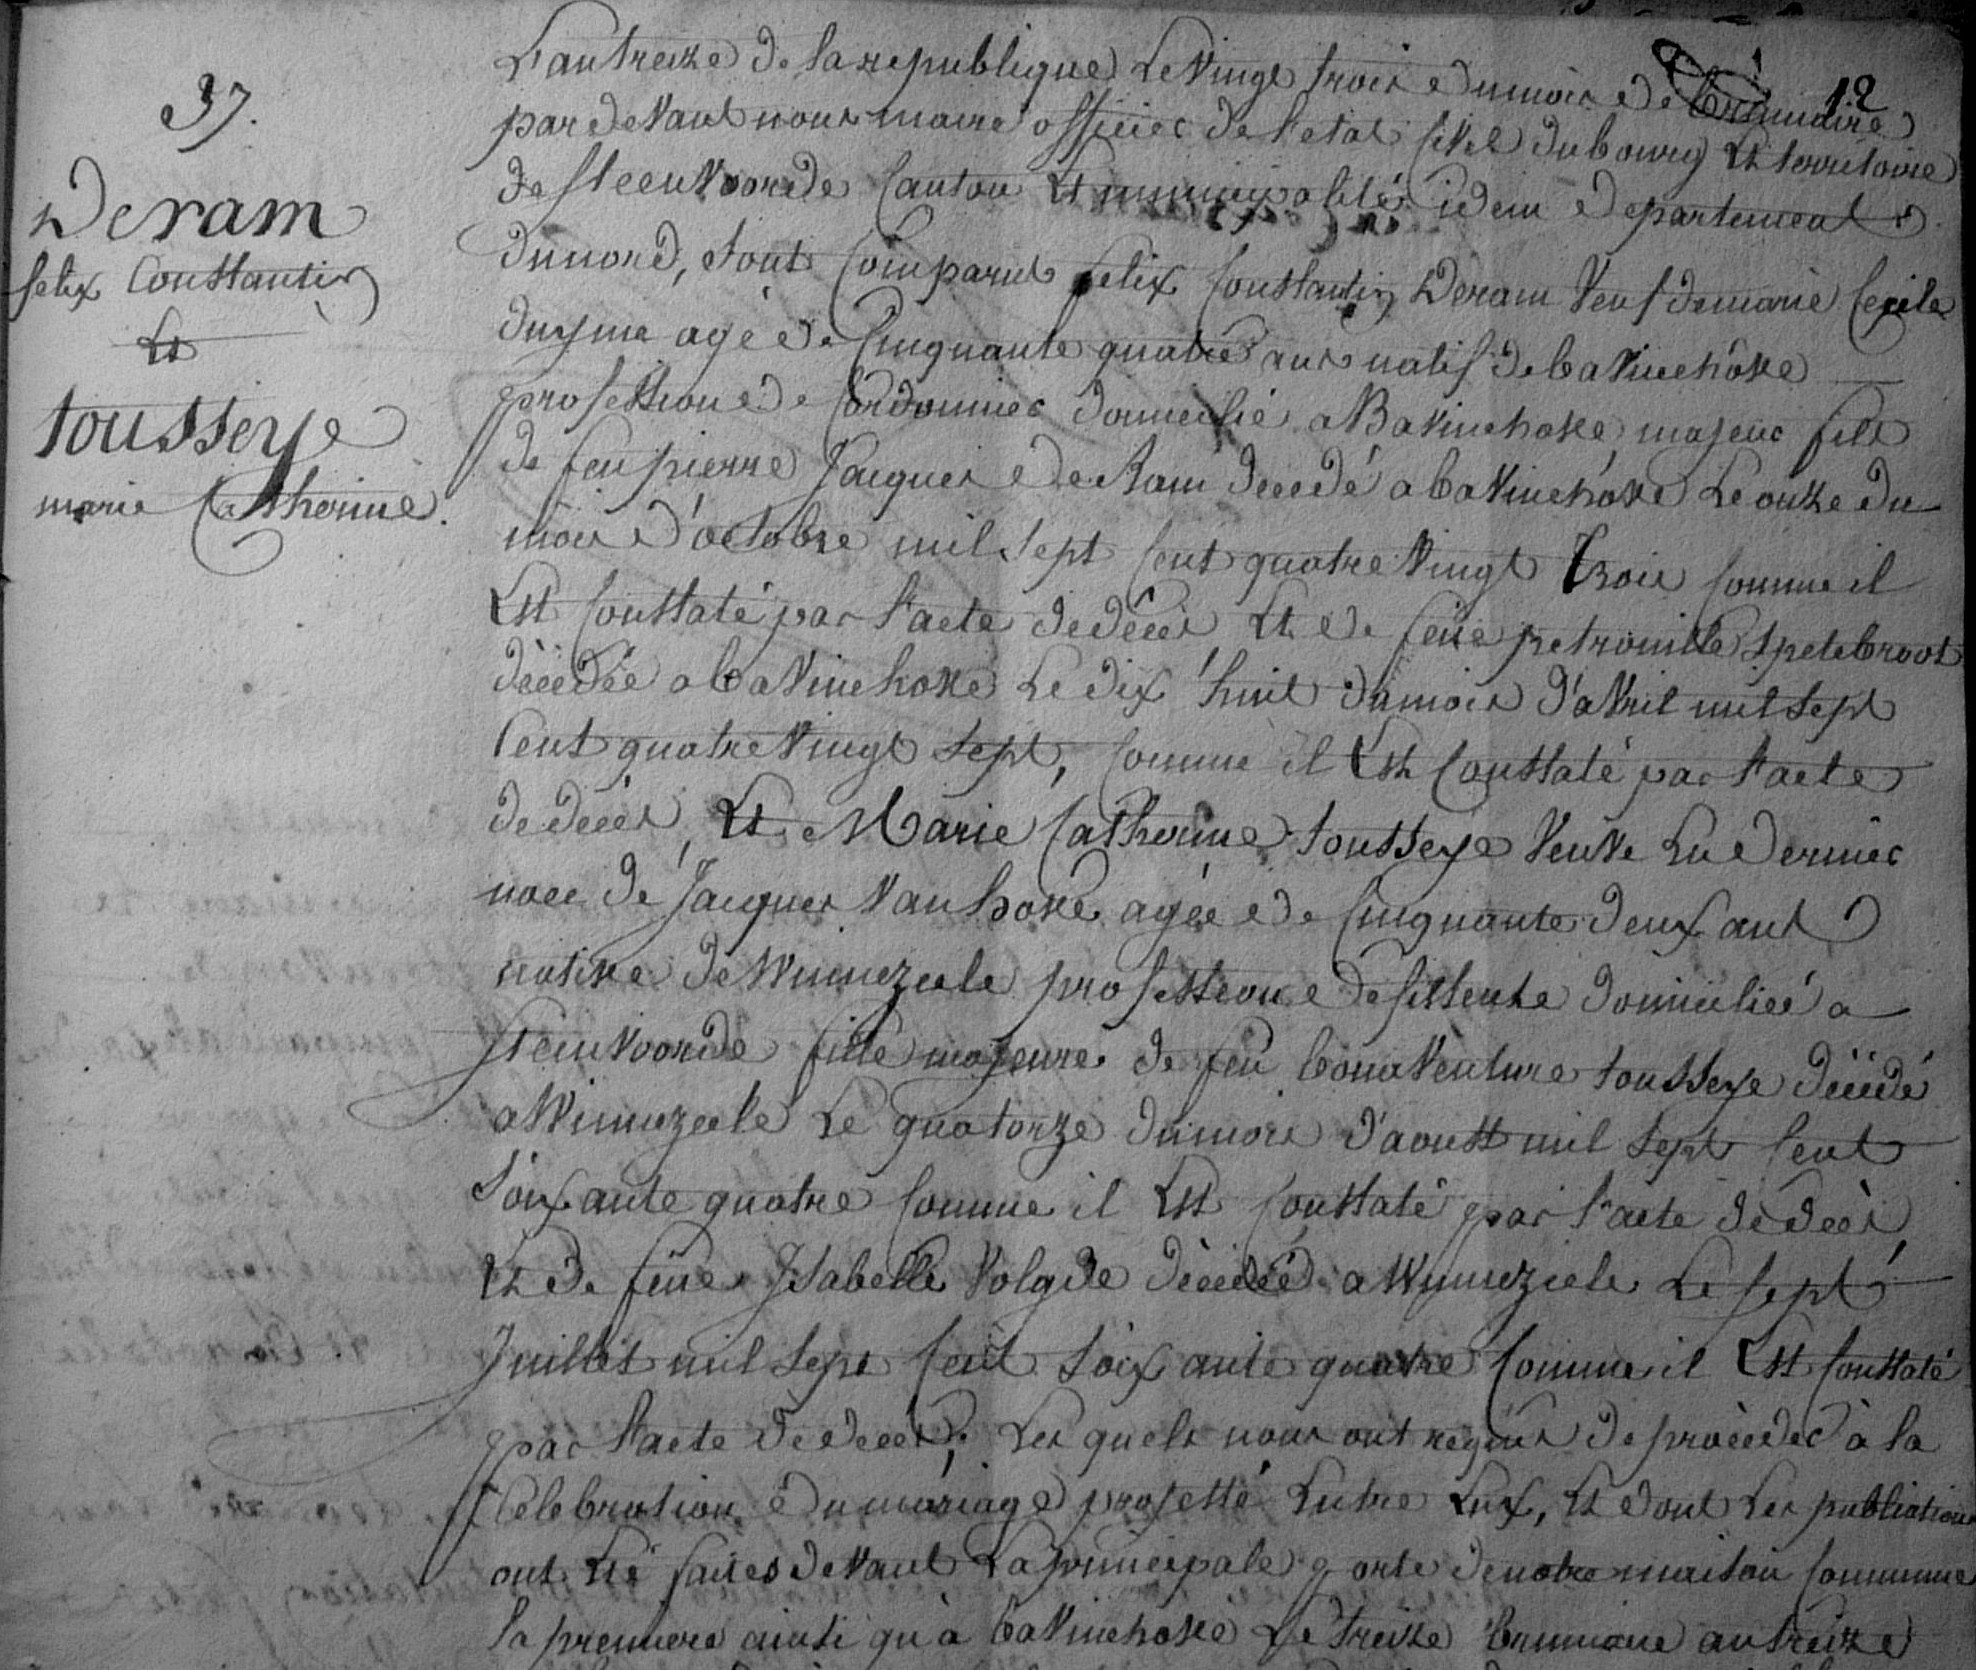 37.
Deram
felix Constantin
Et
tousseye
marie Catherine.
12
L'an treize de la republique Le Vingt trois du mois de brumaire
par devant nous maire officier de l'etat Civil du bourg Et territoire
de steenvoorde Canton Et municipalité idem departement
du nord, sont Comparut felix Constantin Deram Veuf de marie Cecile
duyme agé de Cinquante quatre ans natif de baVinchôve
profession de Cordonnier domicilié a BaVinchove, majeur fils
de feu pierre Jacques de Ram decedé a baVinchove Le onze du
mois d'octobre mil sept Cent quatre Vingt Trois Comme il
Est Constaté par l'acte de décés Et de feüe petronille Spetebroot
dècedée a baVinchove Le dix huit du mois d'aVril mil sept
Cent quatre Vingt sept, Comme il Est Constaté par l'acte
de decés, Et Marie Catherine tousseye VeuVe En dernier
noce de Jacques Vanhove agée de Cinquante deux ans
natiVe de Winnezeele profession de fileuse domiciliée a
steenVoorde fille majeure de feu bonaVenture tousseye décédé
a Winnezeele Le quatorze du mois d'aoust mil sept Cent
soixante quatre Comme il Est Constaté par l'acte de decès,
Et de feüe Isabelle Volgde dècedée a Winnezeele Le sept
Juillet mil sept Cent soixante quatre Comme il Est Constaté
par l'acte de decés; Les quels nous ont requis de procéder à la
Célebration du màriage projetté Entre Eux, Et dont Les publications
ont Eté faites deVant La principale porte de notre maison Commune
la premiere ainsi qu'à baVinchove Le treize brumaire an treize